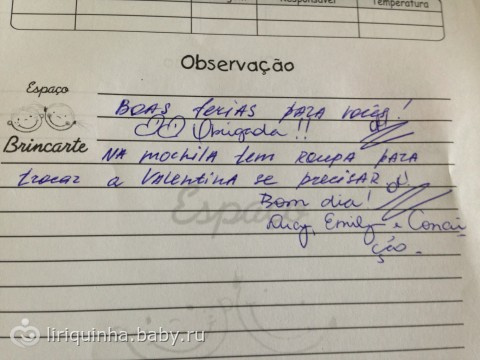 Responsável
Temperatura
Observação
Espaço
Brincarte
BOAS ferias para vocês!
Obrigada!!
NA mochila tem roupa para
trocar a Valentina se precisar!
Bom dia!
Emily e Concei
ção.
Espaço
liriquinha.baby.ru